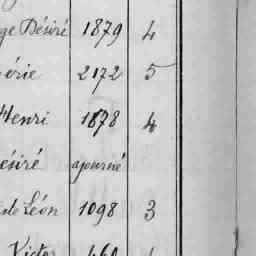 ge Désiré 1879 4
érie 2172 5
Henri 1878 4
ésiré ajourné
de Léon 1098 3
Victor 460